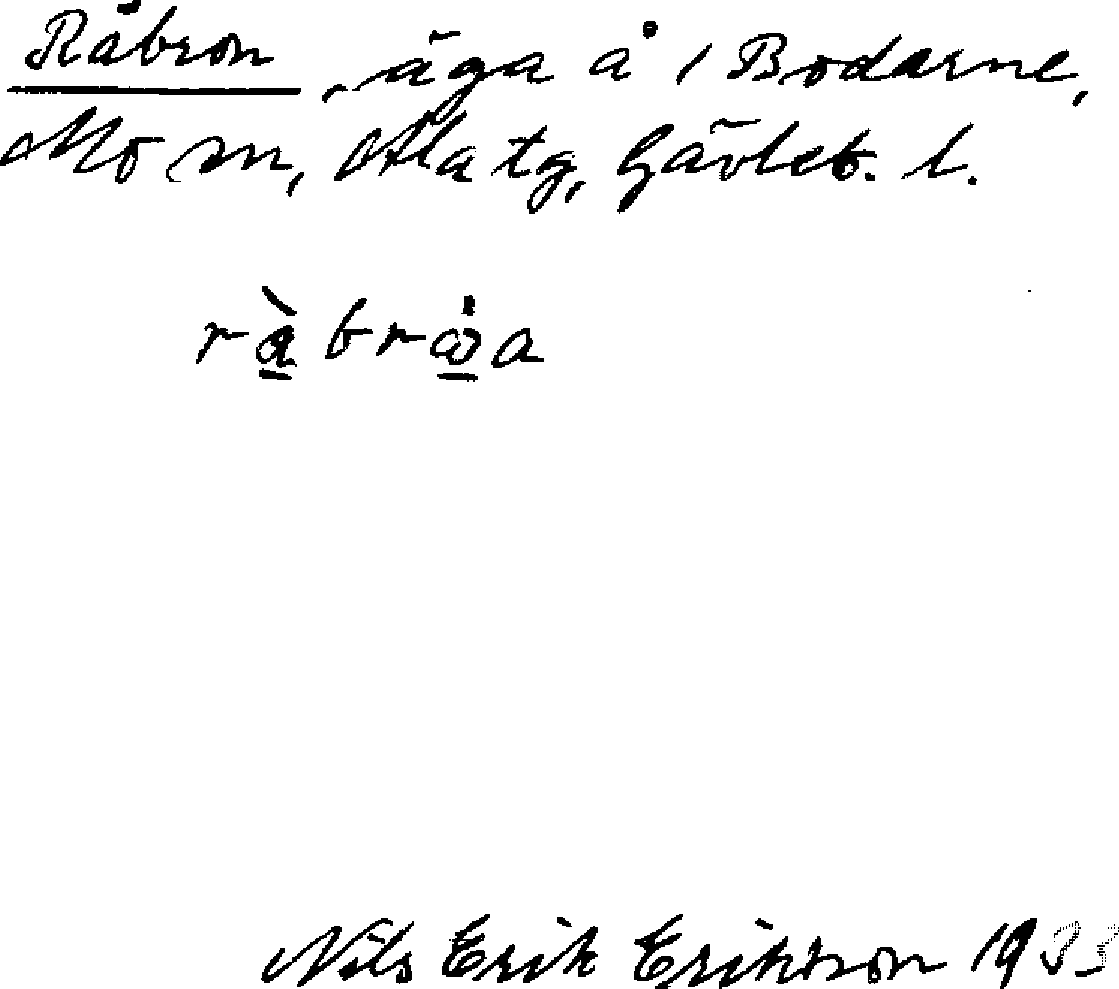 Råbron, äga å / Bodarne,
Mo sn, Ala tg, Gävleb. l.
Nils Erik Eriksson 1933